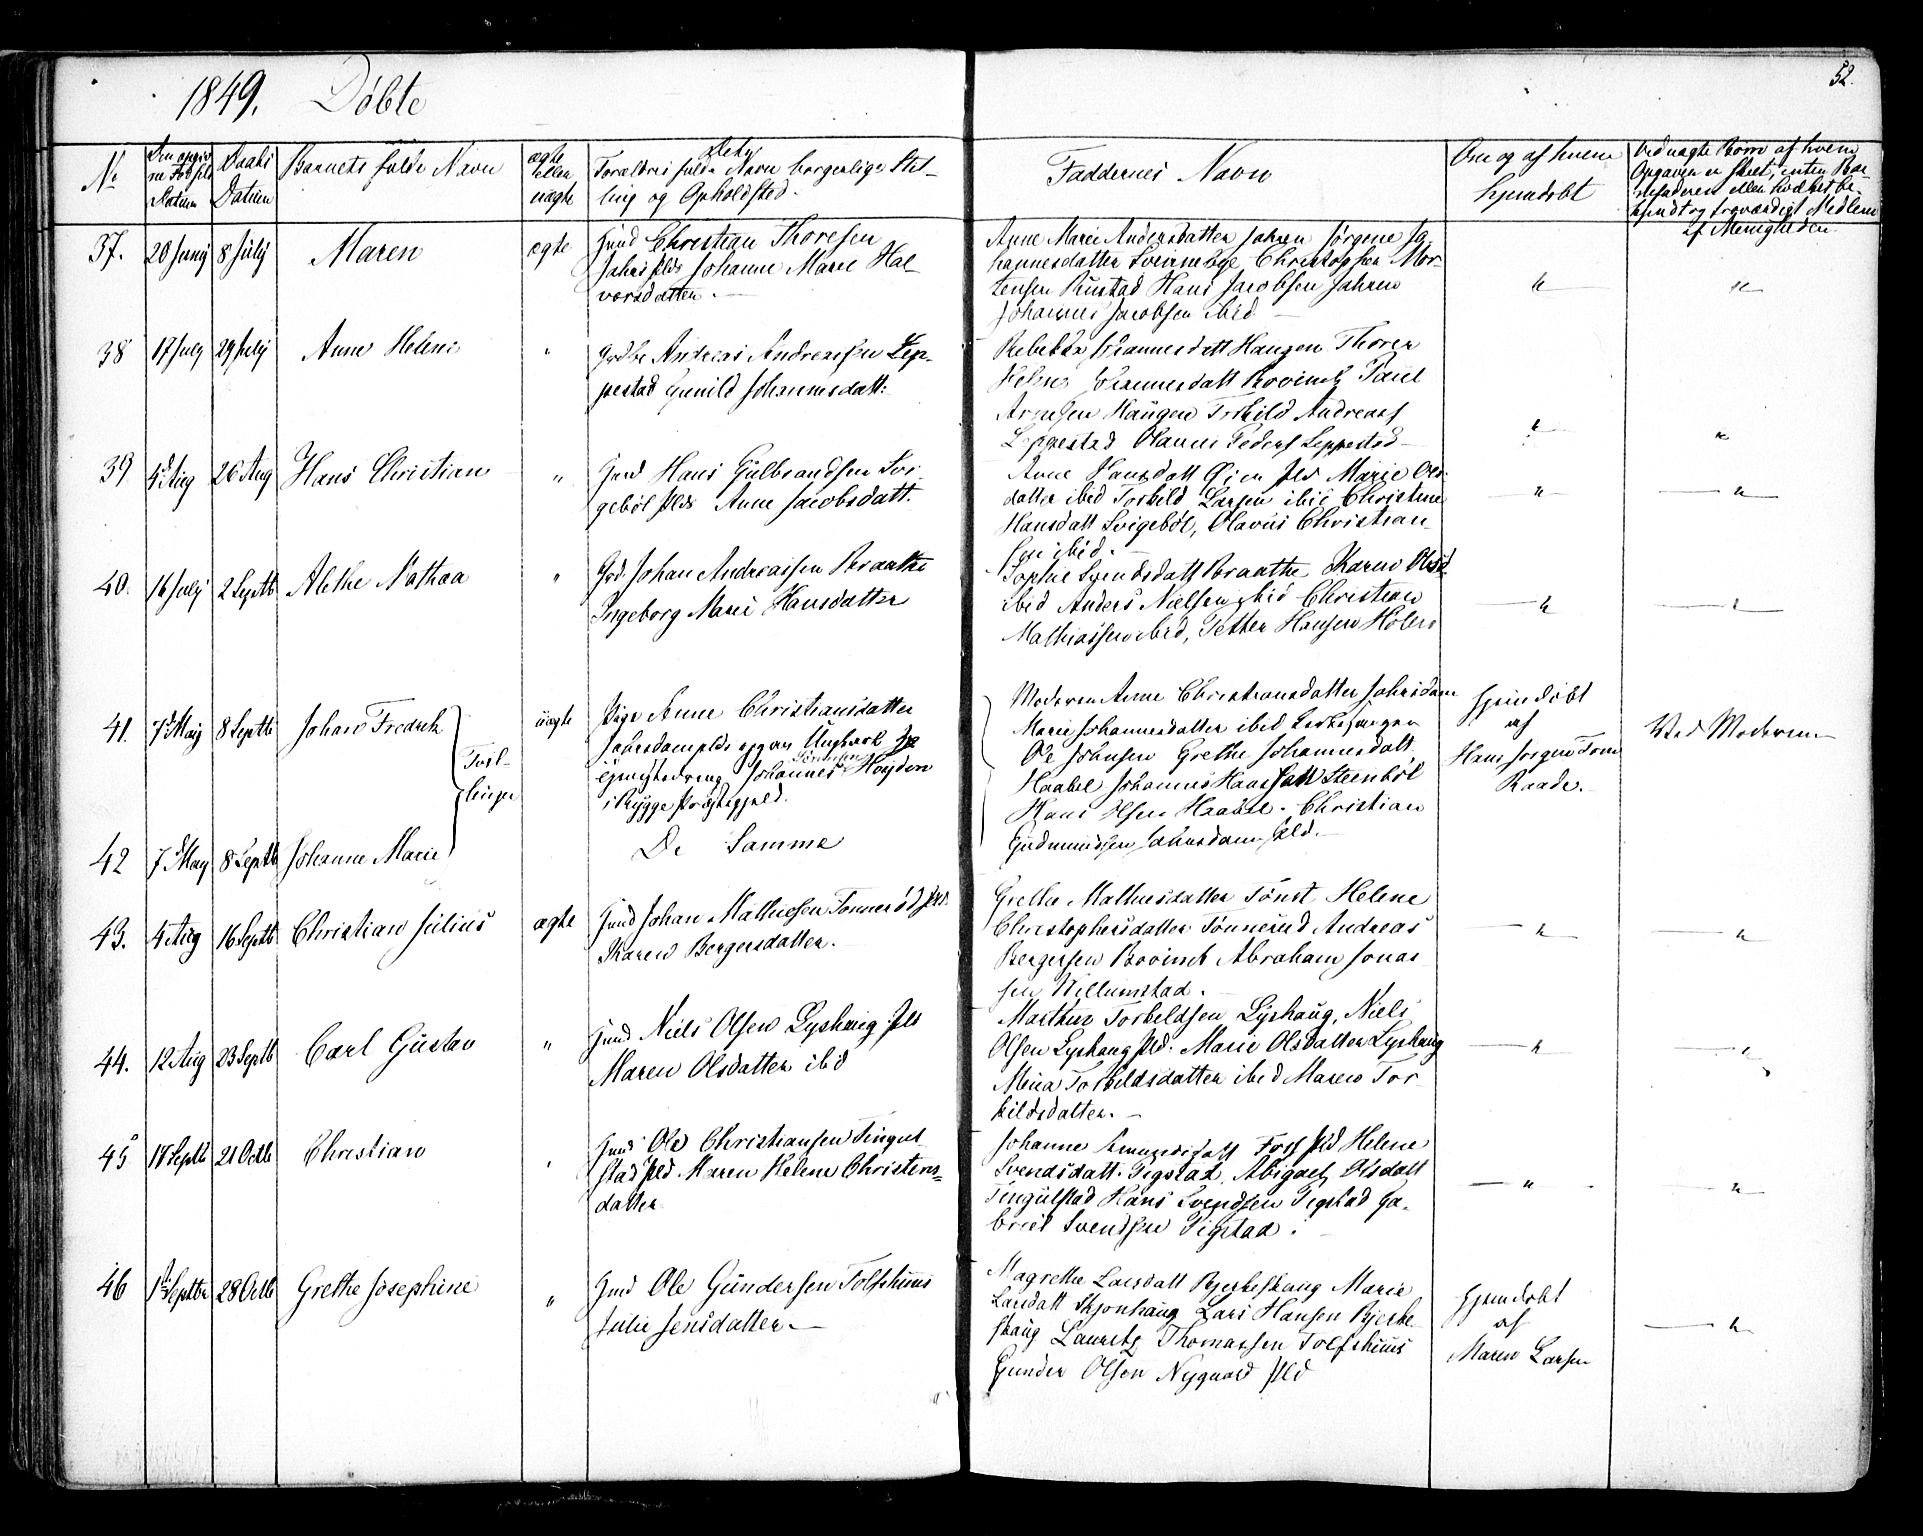 1849. Döbte
52.
No
Den opgivne Födsels Datum
Daabs Datum
Barnets fulde Navn
ægte eller uægte
Forældres fulde Navn borgerlige Stilling og Opholdsted.
Faddernes Navn
Om og af hvem hjemdöbt
Ved uægte Börn af hvem Opgaven er skeet, enten Barnefaderen eller hvilket bekjendt og troværdigt Medlem af Menigheden
37. 20 Juny 8 July Maren ægte
Huusmd Christian Thoresen
Jahrs Plds Johanne Marie Hal-
vorsdatter. —
Anne Marie Andersdatter Jahren Jörgene Jo
hannesdatter Svinnebye Christopher Mor-
tensen Rustad Hans Jacobsen Jahren
Johannes Jacobsen ibid
38 17 July 29 July Anne Helene "
Andreas Andreassen Lep-
pestad Gunild Johannesdatt:
Rebekka Johannesdatt Haugen Thorer
Helene Johannesdatt Booindt Paul
Arnesen Haugen Torkild Andreas
Leppestad Olaves Peders Leppestad
39 4de Aug 26 Aug Hans Christian "
Hans Gulbrandsen Svi-
geböl Plds Anne Jacobsdatt.
Anne Hansdatt Öien Pls Marie Ols-
datter ibid Torkeld Larsen ibid Christine
Hansdatt Svigeböl, Olavus Christian-
sen ibid. —
40. 16 July 2 Septb Alethe Nathaa "
Grd. Johan Andreassen Braathe
Ingeborg Marie Hansdatter
Sophie Svendsdatt Braathe Karen Olsd.
ibid Anders Nielsen ibid Christian
Mathiassen ibid, Petter Hansen Holen
41. 7de May 8 Septb Johan Fredrik
Tvil-
linger
uægte
Pige Anne Christiansdatter
Jahrsdam plds opgav Ungkarl
Johannes Höyden
i Rygge Præstegjeld.
Moderen Anne Christiansdatter Jahrsdam
Marie Johannesdatter ibid
Ole Johnsen Grethe Johannesdatt.
Haabel Johannes Steenböl
Hans Olsen Haabel. Christian
Gudmundsen Jahrsdam Pld. —
Hjemdöbt
af
Hans Jörgen
Raade.
Ved Moderen
42 7de May 8 Septb Johanne Marie
De Samme
43. 4 Aug 16 Septb Christian Julius ægte
Johan Mathiesen Tonneröd Pld.
Karen Bergersdatter.
Grethe Mathiesdatter Helene
Christophersdatter Tönnerud Andreas
Bergersen Booindt Abraham Jonas-
sen Willumstad.
44. 12 Aug 23 Septb Carl Gustav "
Niels Olsen Lyshaug Pls
Maren Olsdatter ibid
Marthin Torkeldsen Lyshaug, Niels
Olsen Lyshaug Pld. Marie Olsdatter Lyshaug
Mina Torkeldsdatter ibid Maren Tor-
kildsdatter. —
45 18 Septb 21 Octb Christian
Ole Christiansen Tingul-
stad Pld. Maren Helene Christens-
datter
Johanne Foss Pld Helene
Svendsdatt. Tigstad, Abigael Olsdatt
Tingulstad Hans Svendsen Tigstad Ga-
briel Svendsen Tigstad.
46 1ste Septbr 28 Octb Grethe Josephine "
Ole Gundersen Tolfshuus
Julie Jensdatter. —
Magrethe Larsdatt Bjerkeskaug Marie
Larsdatt Skjonhaug Lars Hansen Bjerke-
skaug Lauretz Thomassen Tolfshuus
Gunder Olsen Nygaard Pld
Hjemdöbt
af
Maren Larsen